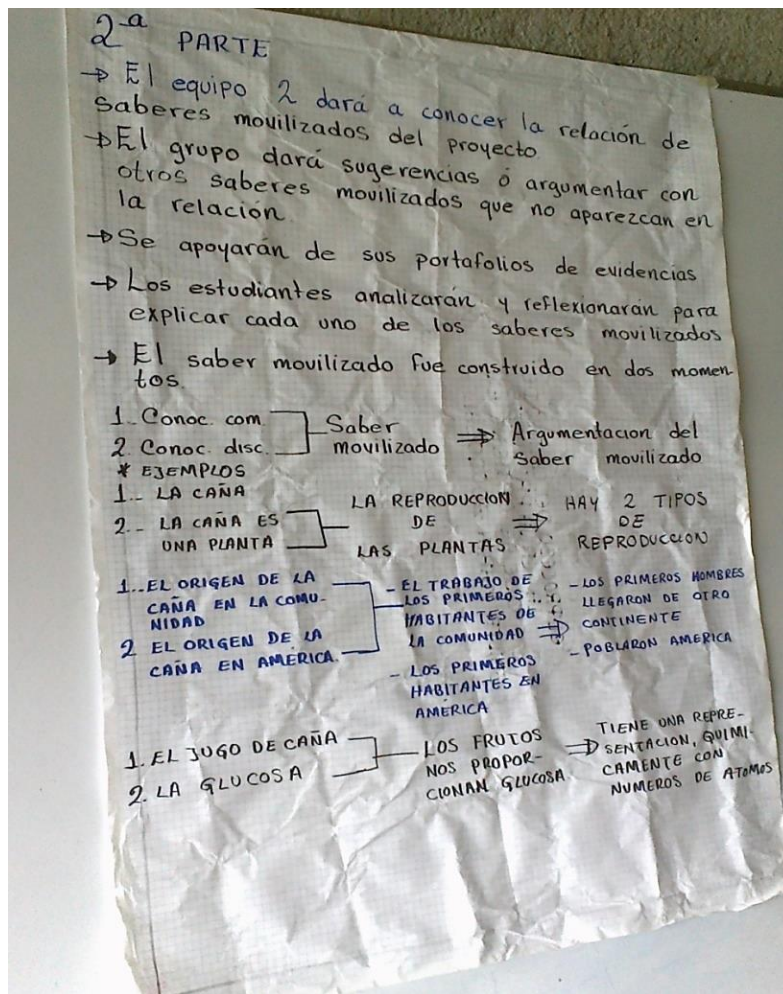 2ª PARTE
→ El equipo 2 dará a conocer la relación de
saberes movilizados del proyecto
→ El grupo dará sugerencias ó argumentar con
otros saberes movilizados que no aparezcan en
la relación.
→ Se apoyarán de sus portafolios de evidencias
→ Los estudiantes analizarán y reflexionarán para
explicar cada uno de los saberes movilizados
→ El saber movilizado fue construido en dos momen-
tos.
1.. Conoc. com.
2. Conoc. disc.
Saber
movilizado
⇒ Argumentacion del
Saber movilizado
* EJEMPLOS
1.. LA CAÑA
2.- LA CAÑA ES
UNA PLANTA
LA REPRODUCCION
DE
LAS PLANTAS
⇒ HAY 2 TIPOS
DE
REPRODUCCION
1.. EL ORIGEN DE LA
CAÑA EN LA COMU-
NIDAD
2 EL ORIGEN DE LA
CAÑA EN AMÉRICA.
- EL TRABAJO DE
LOS PRIMEROS
HABITANTES DE
LA COMUNIDAD
- LOS PRIMEROS
HABITANTES EN
AMERICA
⇒ - LOS PRIMEROS HOMBRES
LLEGARON DE OTRO
CONTINENTE
- POBLARON AMERICA
1. EL JUGO DE CAÑA
2. LA GLUCOSA
LOS FRUTOS
NOS PROPOR-
CIONAN GLUCOSA
⇒ TIENE UNA REPRE-
SENTACION, QUIMI-
CAMENTE CON
NUMEROS DE ATOMOS